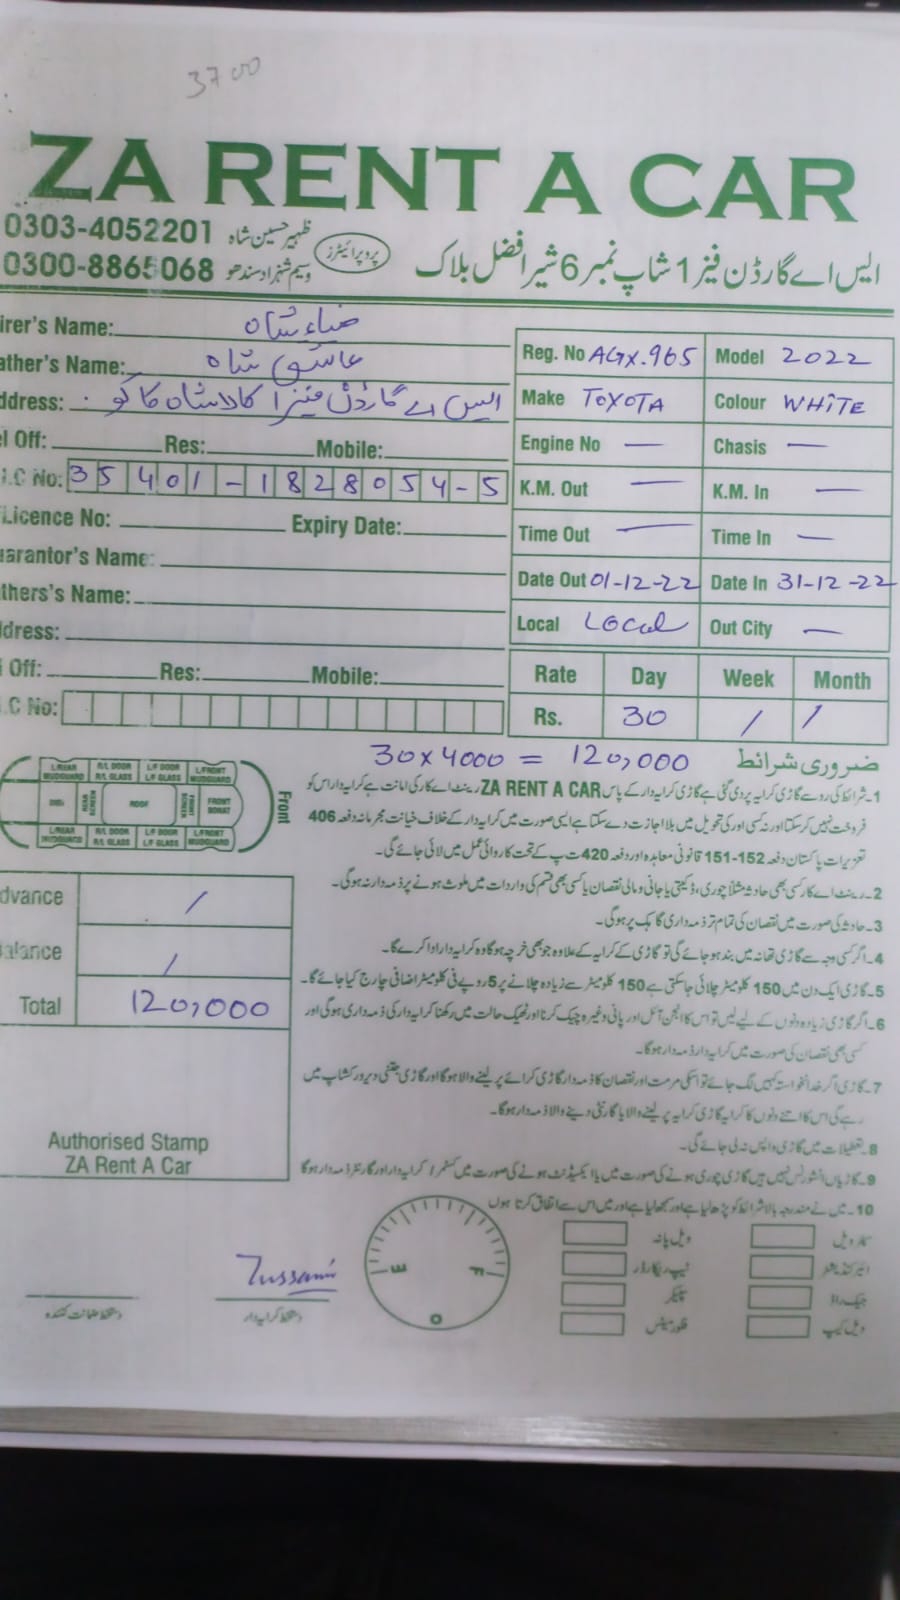 3700
ZA RENT A CAR
0303-4052201 ظہیر حسین شاہ
0300-8865068 وسیم شہزاد سندھو
پروپرائیٹرز
ایس اے گارڈن فیز 1 شاپ نمبر 6 شیر افضل بلاک
irer's Name: ضیاء شاہ
ather's Name: عاشق شاہ
ddress: ایس اے گارڈن فیز 1 کالا شاہ کاکو
l Off: Res: Mobile:
.C No: 35401-1828054-5
Licence No: Expiry Date:
arantor's Name:
thers's Name:
ddress:
Off: Res: Mobile:
.C No:
Reg. No AGX.965 Model 2022
Make TOYOTA Colour WHITE
Engine No — Chasis —
K.M. Out — K.M. In —
Time Out — Time In —
Date Out 01-12-22 Date In 31-12-22
Local Local Out City —
Rate Day Week Month
Rs. 30 / /
30 x 4000 = 120,000
ضروری شرائط
L/REAR MUDGUARD R/L DOOR R/L GLASS L/F DOOR L/F GLASS L/FRONT MUDGUARD
DIGI REAR SCREEN ROOF FRONT SCREEN FRONT BONAT
L/REAR MUDGUARD R/L DOOR R/L GLASS L/F DOOR L/F GLASS L/FRONT MUDGUARD
Front
1۔ شرائط کی رو سے گاڑی کرایہ پر دی گئی ہے گاڑی کرایہ دار کے پاس ZA RENT A CAR رینٹ اے کار کی امانت ہے کرایہ دار اس کو
فروخت نہیں کر سکتا اور نہ کسی اور کی تحویل میں بلا اجازت دے سکتا ہے ایسی صورت میں کرایہ دار کے خلاف خیانت مجرمانہ دفعہ 406
تعزیرات پاکستان دفعہ 152-151 قانونی معاہدہ اور دفعہ 420 ت پ کے تحت کاروائی عمل میں لائی جائے گی۔
2۔ رینٹ اے کار کسی بھی حادثہ مثلاً چوری، ڈکیتی یا جانی و مالی نقصان یا کسی بھی قسم کی واردات میں ملوث ہونے پر ذمہ دار نہ ہوگی۔
3۔ حادثہ کی صورت میں نقصان کی تمام تر ذمہ داری گاہک پر ہوگی۔
4۔ اگر کسی وجہ سے گاڑی تھانہ میں بند ہو جائے گی تو گاڑی کے کرایہ کے علاوہ جو بھی خرچہ ہوگا وہ کرایہ دار ادا کرے گا۔
5۔ گاڑی ایک دن میں 150 کلومیٹر چلائی جا سکتی ہے 150 کلومیٹر سے زیادہ چلانے پر 5 روپے فی کلومیٹر اضافی چارج کیا جائے گا۔
6۔ اگر گاڑی زیادہ دنوں کے لیے لیں تو اس کا انجن آئل اور پانی وغیرہ چیک کرنا اور ٹھیک حالت میں رکھنا کرایہ دار کی ذمہ داری ہوگی اور
کسی بھی نقصان کی صورت میں کرایہ دار ذمہ دار ہوگا۔
7۔ گاڑی اگر خدانخواستہ کہیں لگ جائے تو اسکی مرمت اور نقصان کا ذمہ دار گاڑی کرائے پر لینے والا ہوگا اور گاڑی جتنی دیر ورکشاپ میں
رہے گی اس کا اتنے دنوں کا کرایہ گاڑی کرایہ پر لینے والا یا گارنٹی دینے والا ذمہ دار ہوگا۔
8۔ تعطیلات میں گاڑی واپس نہ لی جائے گی۔
9۔ گاڑیاں انشورنس نہیں ہیں گاڑی چوری ہونے کی صورت میں یا ایکسیڈنٹ ہونے کی صورت میں کسٹمر / کرایہ دار اور گارنٹر ذمہ دار ہوگا
10۔ میں نے مندرجہ بالا شرائط کو پڑھ لیا ہے اور سمجھ لیا ہے اور میں اس سے اتفاق کرتا ہوں
dvance /
alance /
Total 120,000
Authorised Stamp
ZA Rent A Car
E F
O
ویل پانہ
ائیر کنڈیشنر ٹیپ ریکارڈر
جیک راڈ سپیکر
ویل کیپ فلور میٹس
دستخط کرایہ دار
دستخط ضمانت کنندہ